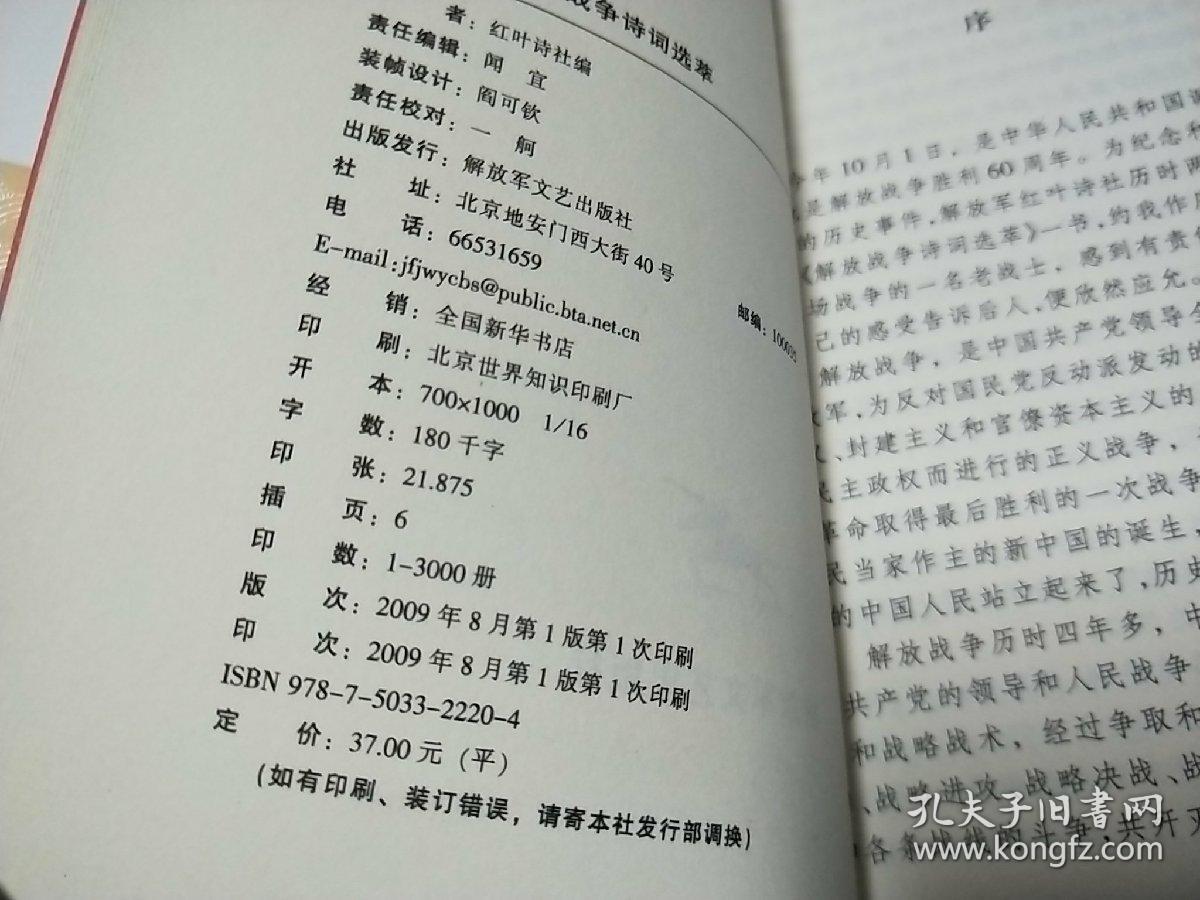 战争诗词选萃
者：红叶诗社编
责任编辑：闻 宜
装帧设计：阎可钦
责任校对：一 舸
出版发行：解放军文艺出版社
社 址：北京地安门西大街40号 邮编：100035
电 话：66531659
E-mail:jfjwycbs@public.bta.net.cn
经 销：全国新华书店
印 刷：北京世界知识印刷厂
开 本：700×1000 1/16
字 数：180千字
印 张：21.875
插 页：6
印 数：1-3000册
版 次：2009年8月第1版第1次印刷
印 次：2009年8月第1版第1次印刷
ISBN 978-7-5033-2220-4
定 价：37.00元（平）
（如有印刷、装订错误，请寄本社发行部调换）
序
今年10月1日，是中华人民共和国诞
是解放战争胜利60周年。为纪念和
的历史事件，解放军红叶诗社历时两
《解放战争诗词选萃》一书，约我作序
场战争的一名老战士，感到有责任
己的感受告诉后人，便欣然应允。
解放战争，是中国共产党领导全
军，为反对国民党反动派发动的
、封建主义和官僚资本主义的
民主政权而进行的正义战争，
革命取得最后胜利的一次战争
民当家作主的新中国的诞生，
的中国人民站立起来了，历史
解放战争历时四年多，中
共产党的领导和人民战争
和战略战术，经过争取和
、战略进攻、战略决战、战
各条战线的斗争，共歼灭
孔夫子旧书网
www.kongfz.com